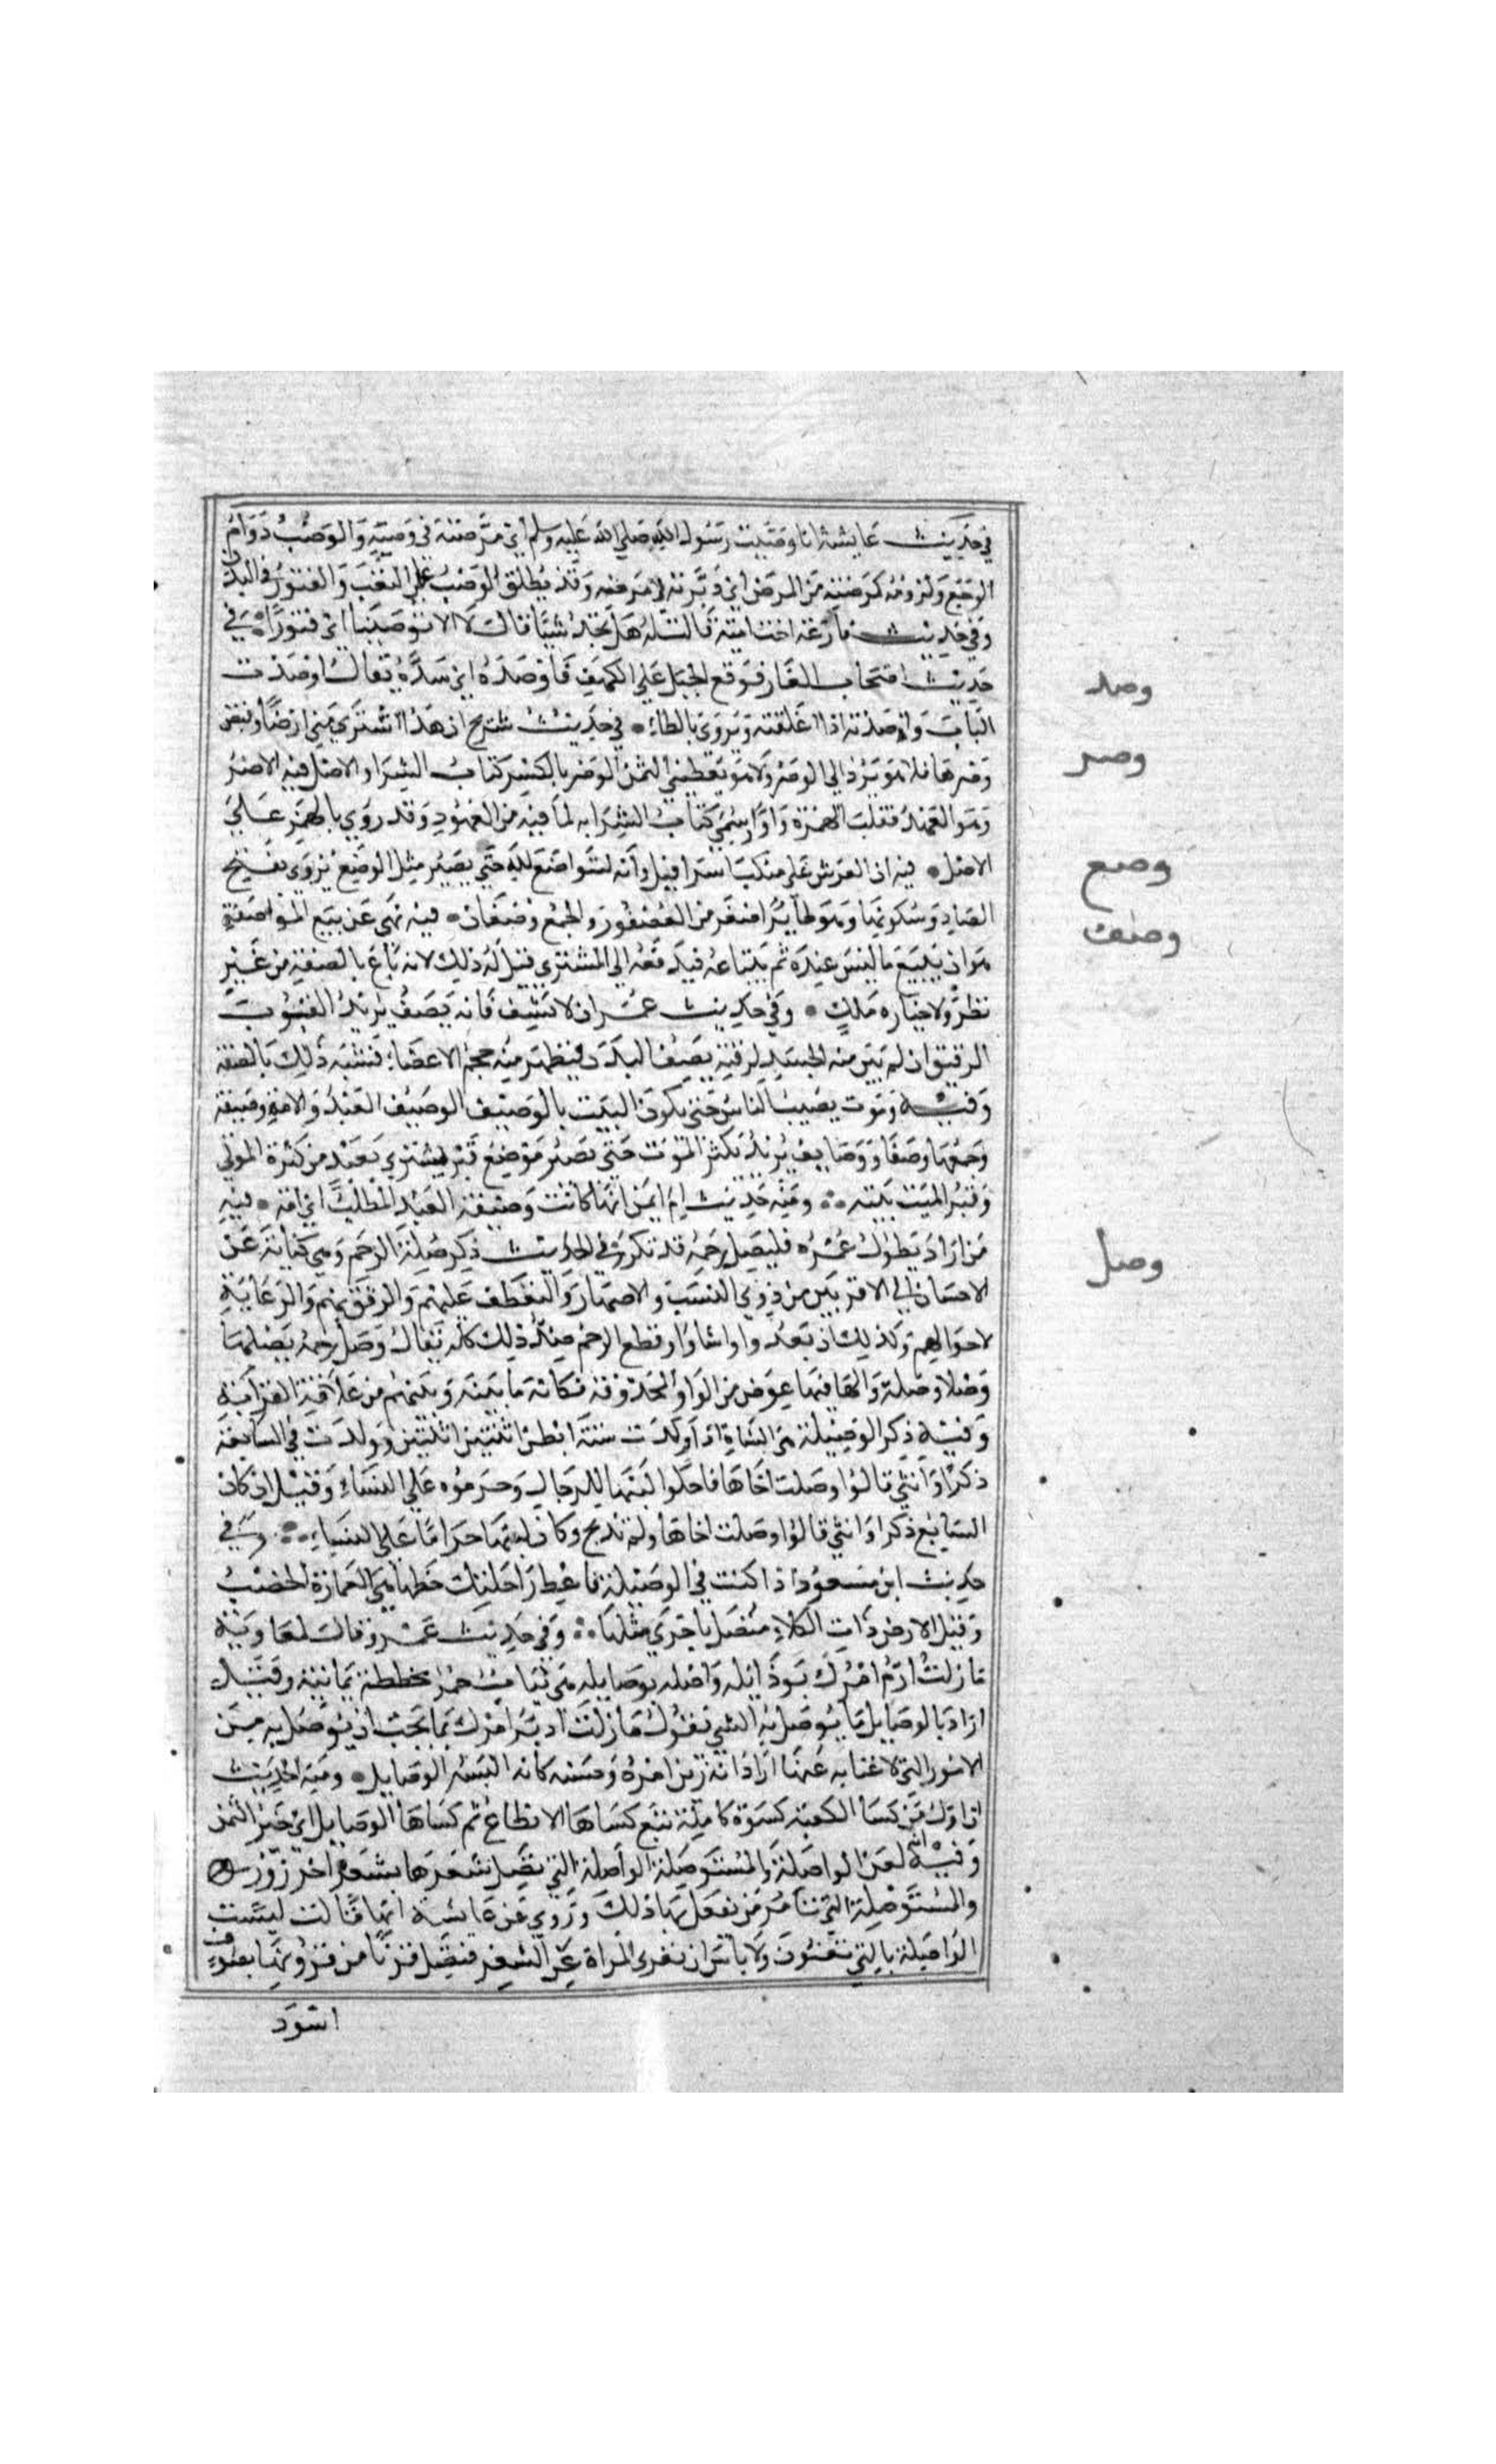 في حديث عايشة انا وصبت رسول الله صلى الله عليه وسلم اي مرضته في وصبه والوصب دوام
الوجع ولزومه كمرضته من المرض اي دبرته في مرضه وقد يطلق الوصب على التعب والفتور في البدن
وفي حديث فارعة اخت امية قالت له هل تجد شيئا قال لا الا توصيبا اي فتورا في
حديث اصحاب الغار فوقع الجبل على الكهف فاوصده اي سده يقال اوصدت
الباب واصدته اذا اغلقته ويروى بالطاء في حديث شريح ان هذا اشترى مني ارضا وقبض
وصرها فلا هو يرد الي الوصر ولا هو يعطيني الثمن الوصر بالكسر كتاب الشرا والاصل فيه الاصر
وهو العهد فقلبت الهمزة واوا وسمي كتاب الشرا به لما فيه من العهود وقد روي بالهمز على
الاصل فيه ان العرش على منكب اسرافيل وانه ليتواضع لله حتى يصير مثل الوصع يروى بفتح
الصاد وسكونها وهو طاير اصغر من العصفور والجمع وصعان فيه نهى عن بيع المواصفة
هو ان يبيع ما ليس عنده ثم يبتاعه فيدفعه الي المشتري قيل له ذلك لانه باع بالصفة من غير
نظر ولا حيازة ملك وفي حديث عمر ان لا يشف فانه يصف يريد الثوب
الرقيق ان لم يبن منه الجسد لرقته يصف البدن فيظهر منه حجم الاعضاء فشبه ذلك بالصفة
وفيه وموت يصيب الناس حتى يكون البيت بالوصيف الوصيف العبد والامة وصيفة
وجمعها وصفا ووصايف يريد يكثر الموت حتى يصير موضع قبر يشترى بعبد من كثرة الموتى
وقبر الميت بيته ومنه حديث ام ايمن انها كانت وصيفة لعبد المطلب اي امة فيه
من اراد يطول عمره فليصل رحمه قد تكرر في الحديث ذكر صلة الرحم وهي كناية عن
الاحسان الي الاقربين من ذوي النسب والاصهار والتعطف عليهم والرفق بهم والرعاية
لاحوالهم وكذلك ان بعدوا واساوا وقطع الرحم ضد ذلك كله يقال وصل رحمه يصلها
وصلا وصلة والها فيها عوض من الواو المحذوفة فكانه ما بينه وبينهم من علاقة القرابة
وفيه ذكر الوصيلة هي الشاة اذا ولدت ستة ابطن انثيين انثيين وولدت في السابعة
ذكرا وانثى قالوا وصلت اخاها فاحلوا لبنها للرجال وحرموه على النساء وقيل ان كان
السابع ذكرا وانثى قالوا وصلت اخاها ولم تذبح وكان لبنها حراما على النساء وفي
حديث ابن مسعود اذا كنت في الوصيلة فاعط راحلتك حظها هي العمارة والخصب
وقيل الارض ذات الكلاء متصل باخرى مثلها وفي حديث عمرو قال لمعاوية
ما زلت ارم امرك بوذايله واصله بوصايله هي ثياب حمر مخططة يمانية وقيل
اراد بالوصايل ما يوصل به الشي تقول ما زلت ادبر امرك بما يجب ان يوصل به من
الامور التي لا غنا به عنها اراد انه زين امره وحسنه كانه البسه الوصايل ومنه الحديث
ان اول من كسا الكعبة كسوة كاملة تبع كساها الانطاع ثم كساها الوصايل اي حبر اليمن
وفيه انه لعن الواصلة والمستوصلة الواصلة التي تصل شعرها بشعر اخر زور
والمستوصلة التي تامر من يفعل بها ذلك وروي عن عايشة انها قالت ليست
الواصلة بالتي تعنون ولا باس ان تعرى المراة عن الشعر فتصل قرنا من قرونها بصوف
اسود
وصد
وصر
وصع
وصف
وصل